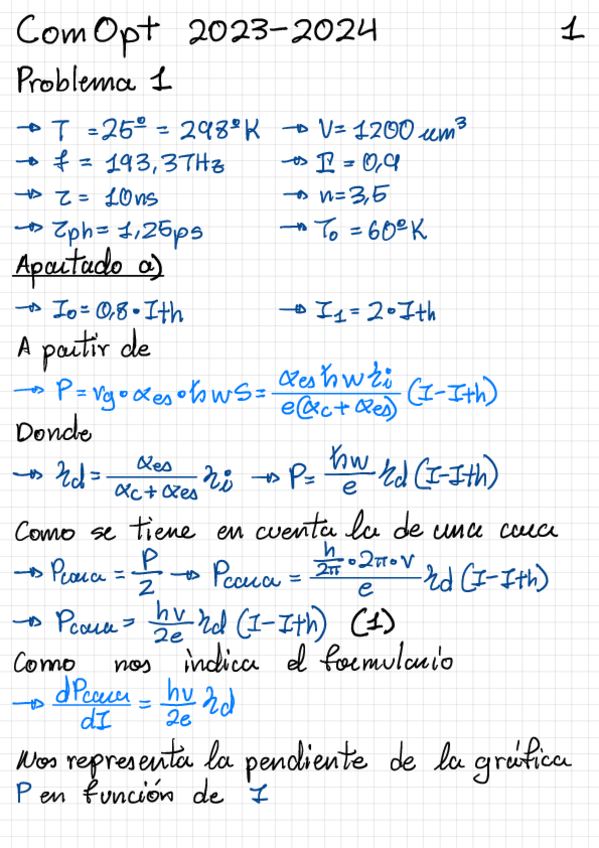 ComOpt 2023-2024 1
Problema 1
→ T = 25º = 298ºK → V = 1200 um³
→ f = 193,3THz → Γ = 0,9
→ τ = 10ns → n = 3,5
→ τph = 1,25ps → To = 60ºK
Apartado a)
→ I₀ = 0,8 · Ith → I₁ = 2 · Ith
A partir de
→ P = vg · αes · ħωS = αes ħω ηi / e(αc + αes) (I - Ith)
Donde
→ ηd = αes / αc + αes ηi → P = ħω / e ηd (I - Ith)
Como se tiene en cuenta la de una cara
→ Pcara = P / 2 → Pcara = h / 2π · 2π · ν / e ηd (I - Ith)
→ Pcara = hν / 2e ηd (I - Ith) (1)
Como nos indica el formulario
→ dPcara / dI = hν / 2e ηd
Nos representa la pendiente de la gráfica
P en función de I